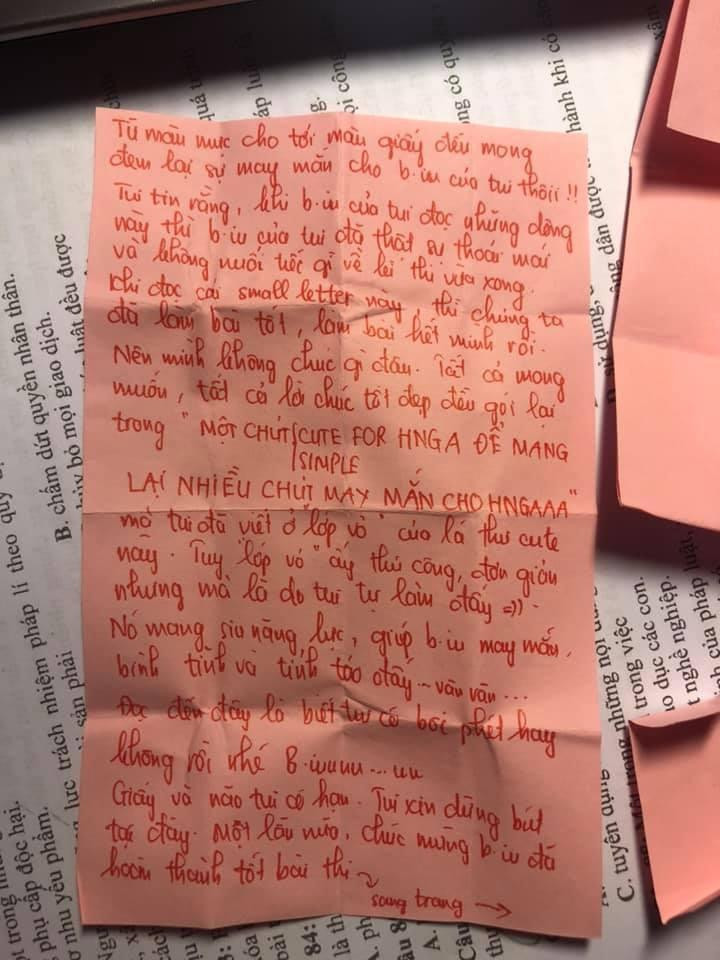 Từ màu mực cho tới màu giấy đều mong
đem lại sự may mắn cho b.iu của tui thôii !!
Tui tin rằng, khi b.iu của tui đọc những dòng
này thì b.iu của tui đã thật sự thoải mái
và không nuối tiếc gì về kì thi vừa xong.
Khi đọc cái small letter này, thì chúng ta
đã làm bài tốt, làm bài hết mình rồi.
Nên mình không chúc gì đâu. Tất cả mong
muốn, tất cả lời chúc tốt đẹp đều gói lại
trong " MỘT CHÚT CUTE FOR HNGA ĐỂ MANG
SIMPLE
LẠI NHIỀU CHÚT MAY MẮN CHO HNGAAA"
mà tui đã viết ở "lớp vỏ" của lá thư cute
này. Tuy "lớp vỏ" ấy thủ công, đơn giản
nhưng mà là do tui tự làm đấy =)).
Nó mang siu năng lực, giúp b.iu may mắn,
bình tĩnh và tỉnh táo đấy ~ vân vân...
Đọc đến đây là biết tư có bơi phết hay
không rồi nhé B.iuuuu...uu
Giấy và não tui có hạn. Tui xin dừng bút
tại đây. Một lần nữa, chúc mừng b.iu đã
hoàn thành tốt bài thi ~
sang trang →
B. chấm dứt quyền nhân thân.
hủy bỏ mọi giao dịch.
lực trách nhiệm pháp lí theo quy
phụ cấp độc hại.
nhu yếu phẩm.
84:
C. tuyển dụng
trong những nội
trong việc
o dục các con.
t nghề nghiệp.
của pháp luật,
hành khi có